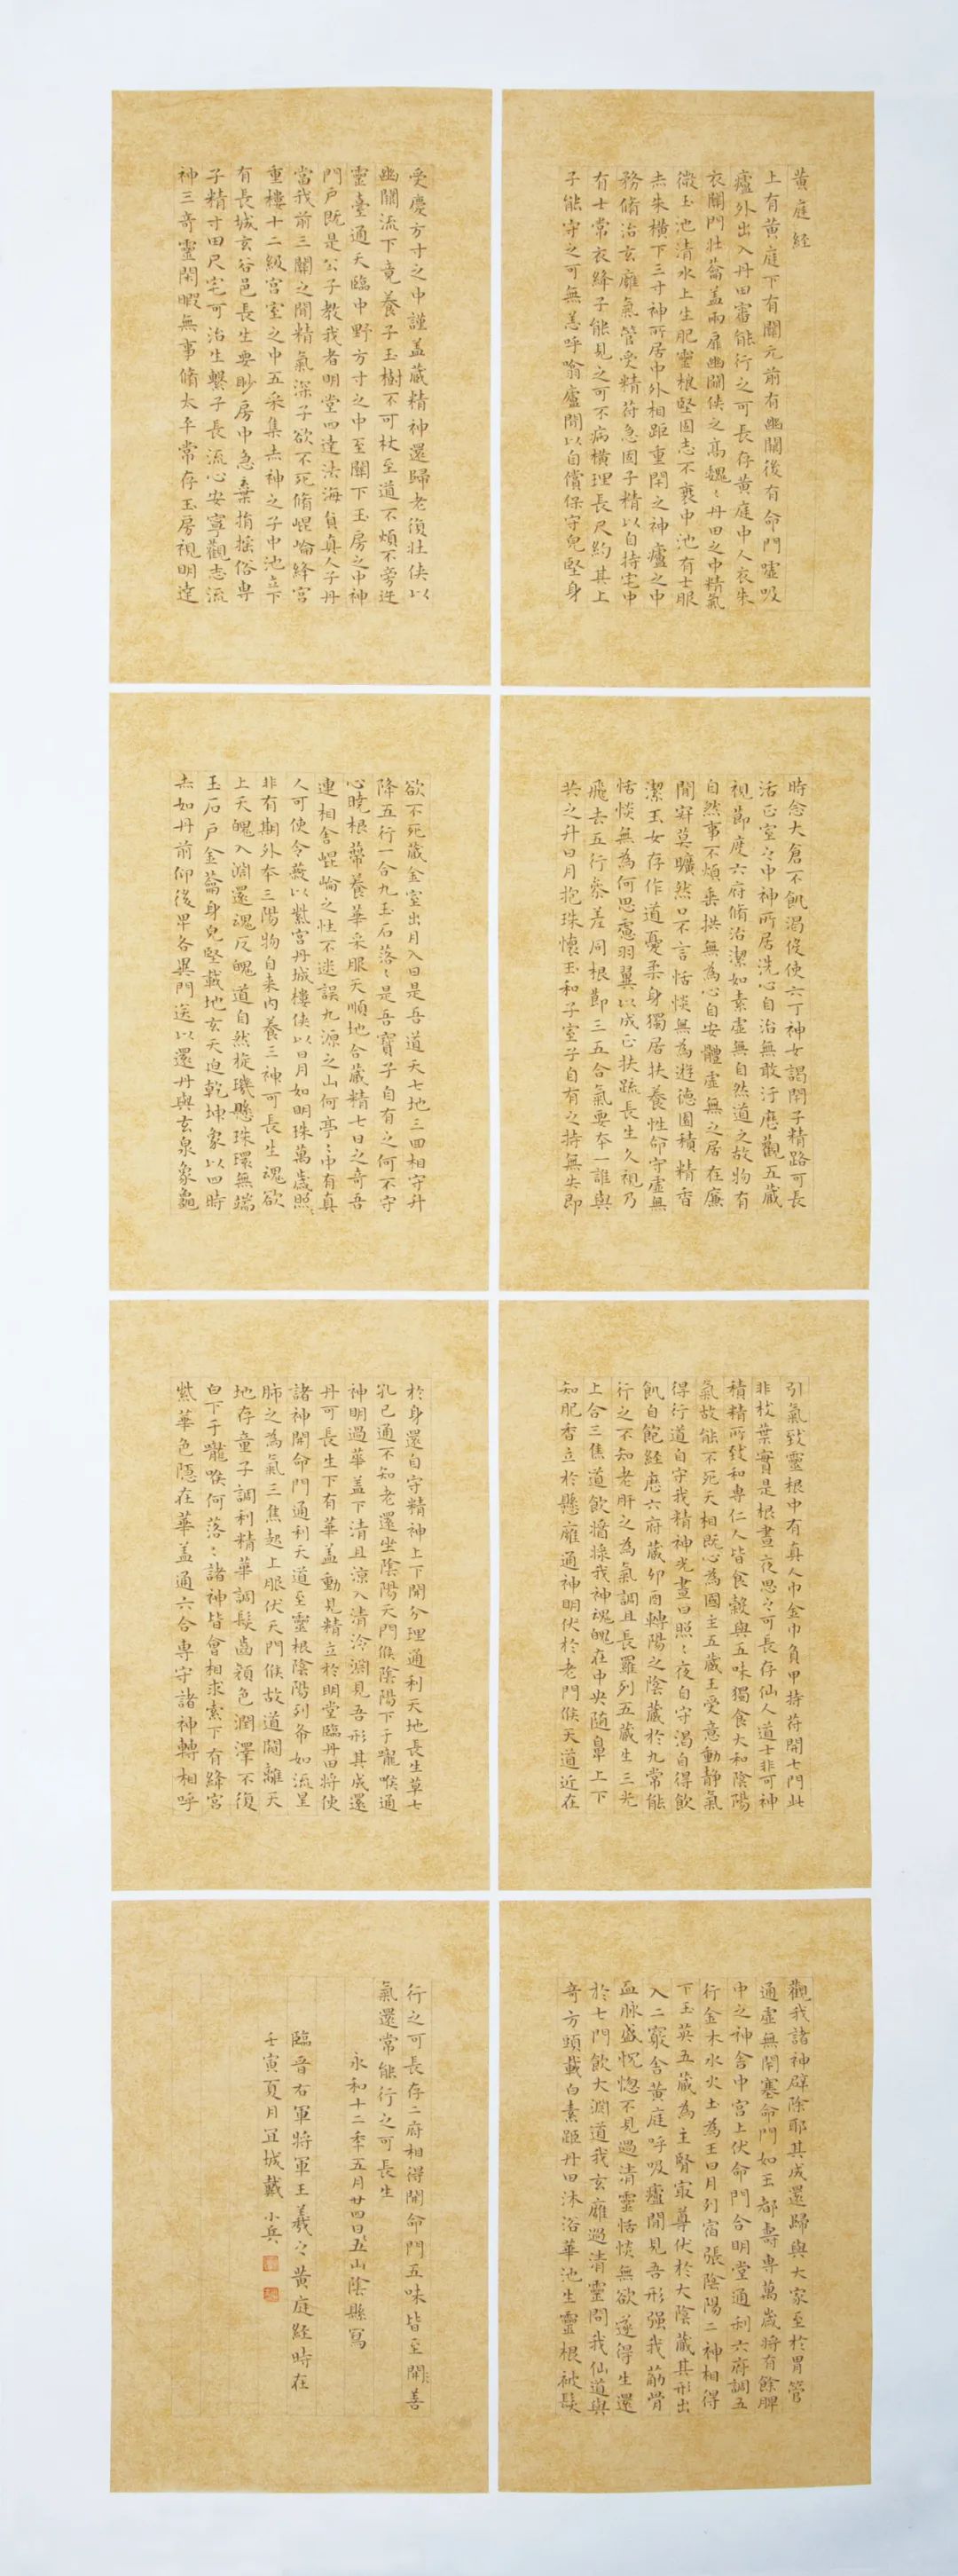 黄庭経
上有黄庭下有關元前有幽闕後有命門噓吸
廬外出入丹田審能行之可長存黄庭中人衣朱
衣關門壮蘥盖兩扉幽闕侠之高魏〻丹田之中精氣
微玉池清水上生肥靈根堅固志不衰中池有士服
赤朱横下三寸神所居中外相距重閇之神廬之中
務脩治玄廱氣管受精符急固子精以自持宅中
有士常衣絳子能見之可不病横理長尺約其上
子能守之可無恙呼噏廬間以自償保守皃堅身
受慶方寸之中謹盖蔵精神還歸老復壮侠以
幽闕流下竟養子玉樹不可杖至道不煩不旁迕
靈臺通天臨中野方寸之中至關下玉房之中神
門戶既是公子教我者明堂四達法海負真人子丹
當我前三關之間精氣深子欲不死脩崐崘絳宫
重樓十二級宫室之中五采集赤神之子中池立下
有長城玄谷邑長生要眇房中急棄捐搖俗専
子精寸田尺宅可治生繫子長流心安寧觀志流
神三奇靈閑暇無事脩太平常存玉房視明達
時念大倉不飢渴役使六丁神女謁閇子精路可長
活正室之中神所居洗心自治無敢汙歴觀五蔵
視節度六府脩治潔如素虚無自然道之故物有
自然事不煩垂拱無為心自安體虚無之居在廉
間寂莫曠然口不言恬惔無為遊德園積精香
潔玉女存作道憂柔身獨居扶養性命守虚無
恬惔無為何思慮羽翼以成正扶疏長生久視乃
飛去五行叅差同根節三五合氣要本一誰與
共之升日月抱珠懷玉和子室子自有之持無失即
欲不死蔵金室出月入日是吾道天七地三回相守升
降五行一合九玉石落〻是吾寶子自有之何不守
心曉根蔕養華采服天順地合蔵精七日之奇吾
連相舎崐崘之性不迷誤九源之山何亭〻中有真
人可使令蔽以紫宫丹城樓侠以日月如明珠萬歳照〻
非有期外本三陽物自来内養三神可長生魂欲
上天魄入淵還魂反魄道自然旋璣懸珠環無端
玉石戶金蘥身皃堅載地玄天迫乾坤象以四時
赤如丹前仰後卑各異門送以還丹與玄泉象龜
引氣致靈根中有真人巾金巾負甲持符開七門此
非枝葉實是根晝夜思之可長存仙人道士非可神
積精所致和専仁人皆食穀與五味獨食大和陰陽
氣故能不死天相既心為國主五蔵王受意動静氣
得行道自守我精神光晝日照〻夜自守渴自得飲
飢自飽経歴六府蔵卯酉轉陽之陰蔵於九常能
行之不知老肝之為氣調且長羅列五蔵生三光
上合三焦道飲醬漿我神魂魄在中央随鼻上下
知肥香立於懸廱通神明伏於老門候天道近在
於身還自守精神上下開分理通利天地長生草七
孔已通不知老還坐陰陽天門候陰陽下于嚨喉通
神明過華盖下清且涼入清泠淵見吾形其成還
丹可長生下有華盖動見精立於明堂臨丹田将使
諸神開命門通利天道至靈根陰陽列布如流星
肺之為氣三焦起上服伏天門候故道闚離天
地存童子調利精華調髮齒顏色潤澤不復
白下于嚨喉何落〻諸神皆會相求索下有絳宫
紫華色隱在華盖通六合専守諸神轉相呼
觀我諸神辟除耶其成還歸與大家至於胃管
通虚無閇塞命門如玉都壽専萬歳将有餘脾
中之神舎中宫上伏命門合明堂通利六府調五
行金木水火土為王日月列宿張陰陽二神相得
下玉英五蔵為主腎㝡尊伏於大陰蔵其形出
入二竅舎黄庭呼吸廬間見吾形强我筋骨
血脉盛怳惚不見過清靈恬惔無欲遂得生還
於七門飲大淵道我玄廱過清靈問我仙道與
奇方頭載白素距丹田沐浴華池生靈根被髮
行之可長存二府相得開命門五味皆至開善
氣還常能行之可長生
永和十二年五月廿四日五山陰縣寫
臨晋右軍将軍王羲之黄庭経時在
壬寅夏月宜城戴小兵